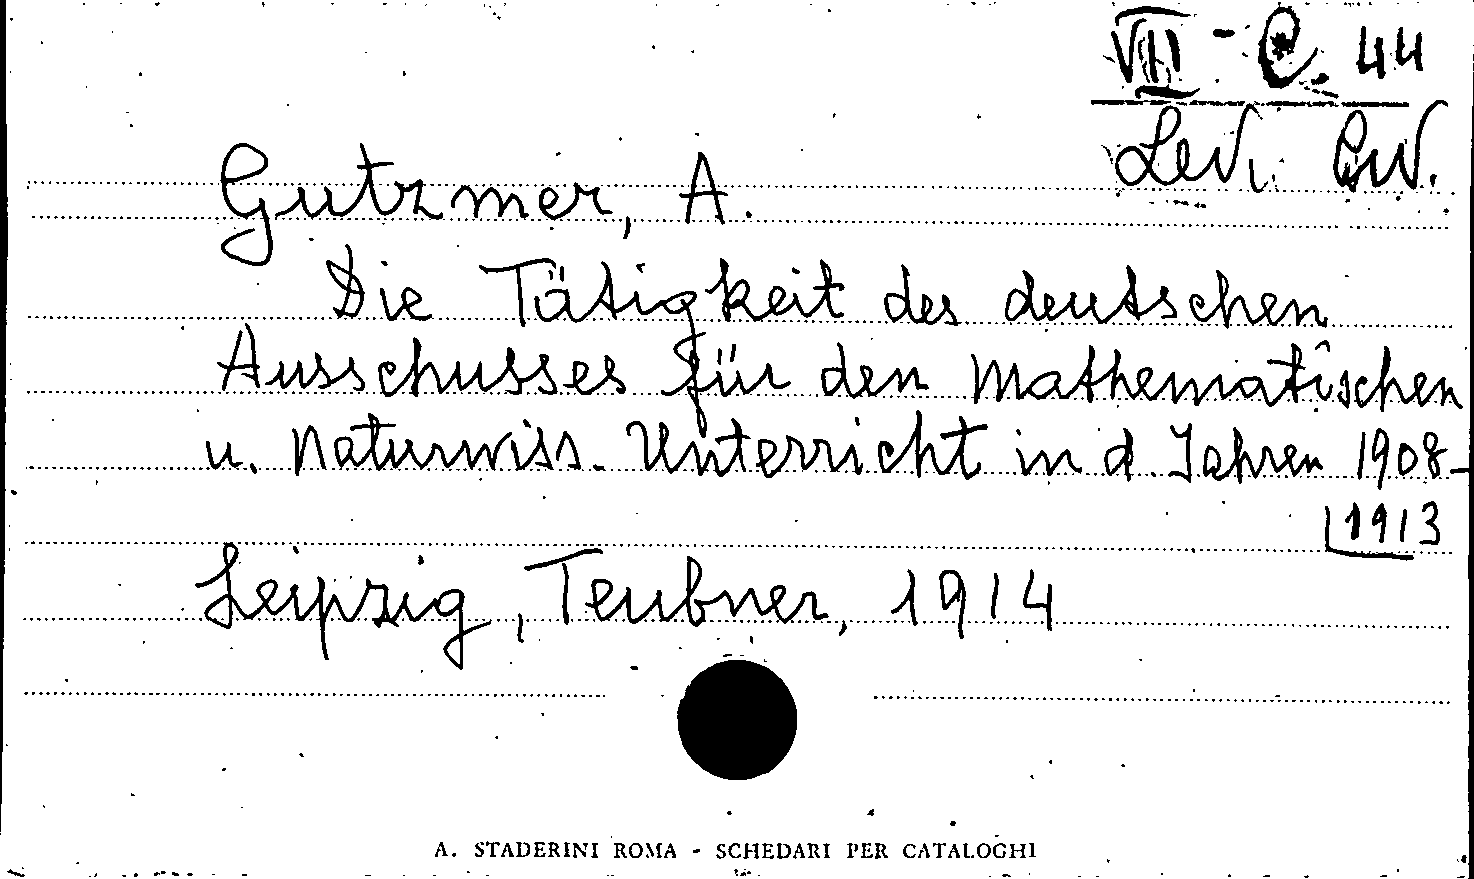 VII - C. 44
Lev. Civ.
Gutzmer, A.
Die Tätigkeit des deutschen
Ausschusses für den Mathematischen
u. Naturwiss. Unterricht in d. Jahren 1908-
1913
Leipzig, Teubner, 1914
A. STADERINI ROMA - SCHEDARI PER CATALOGHI